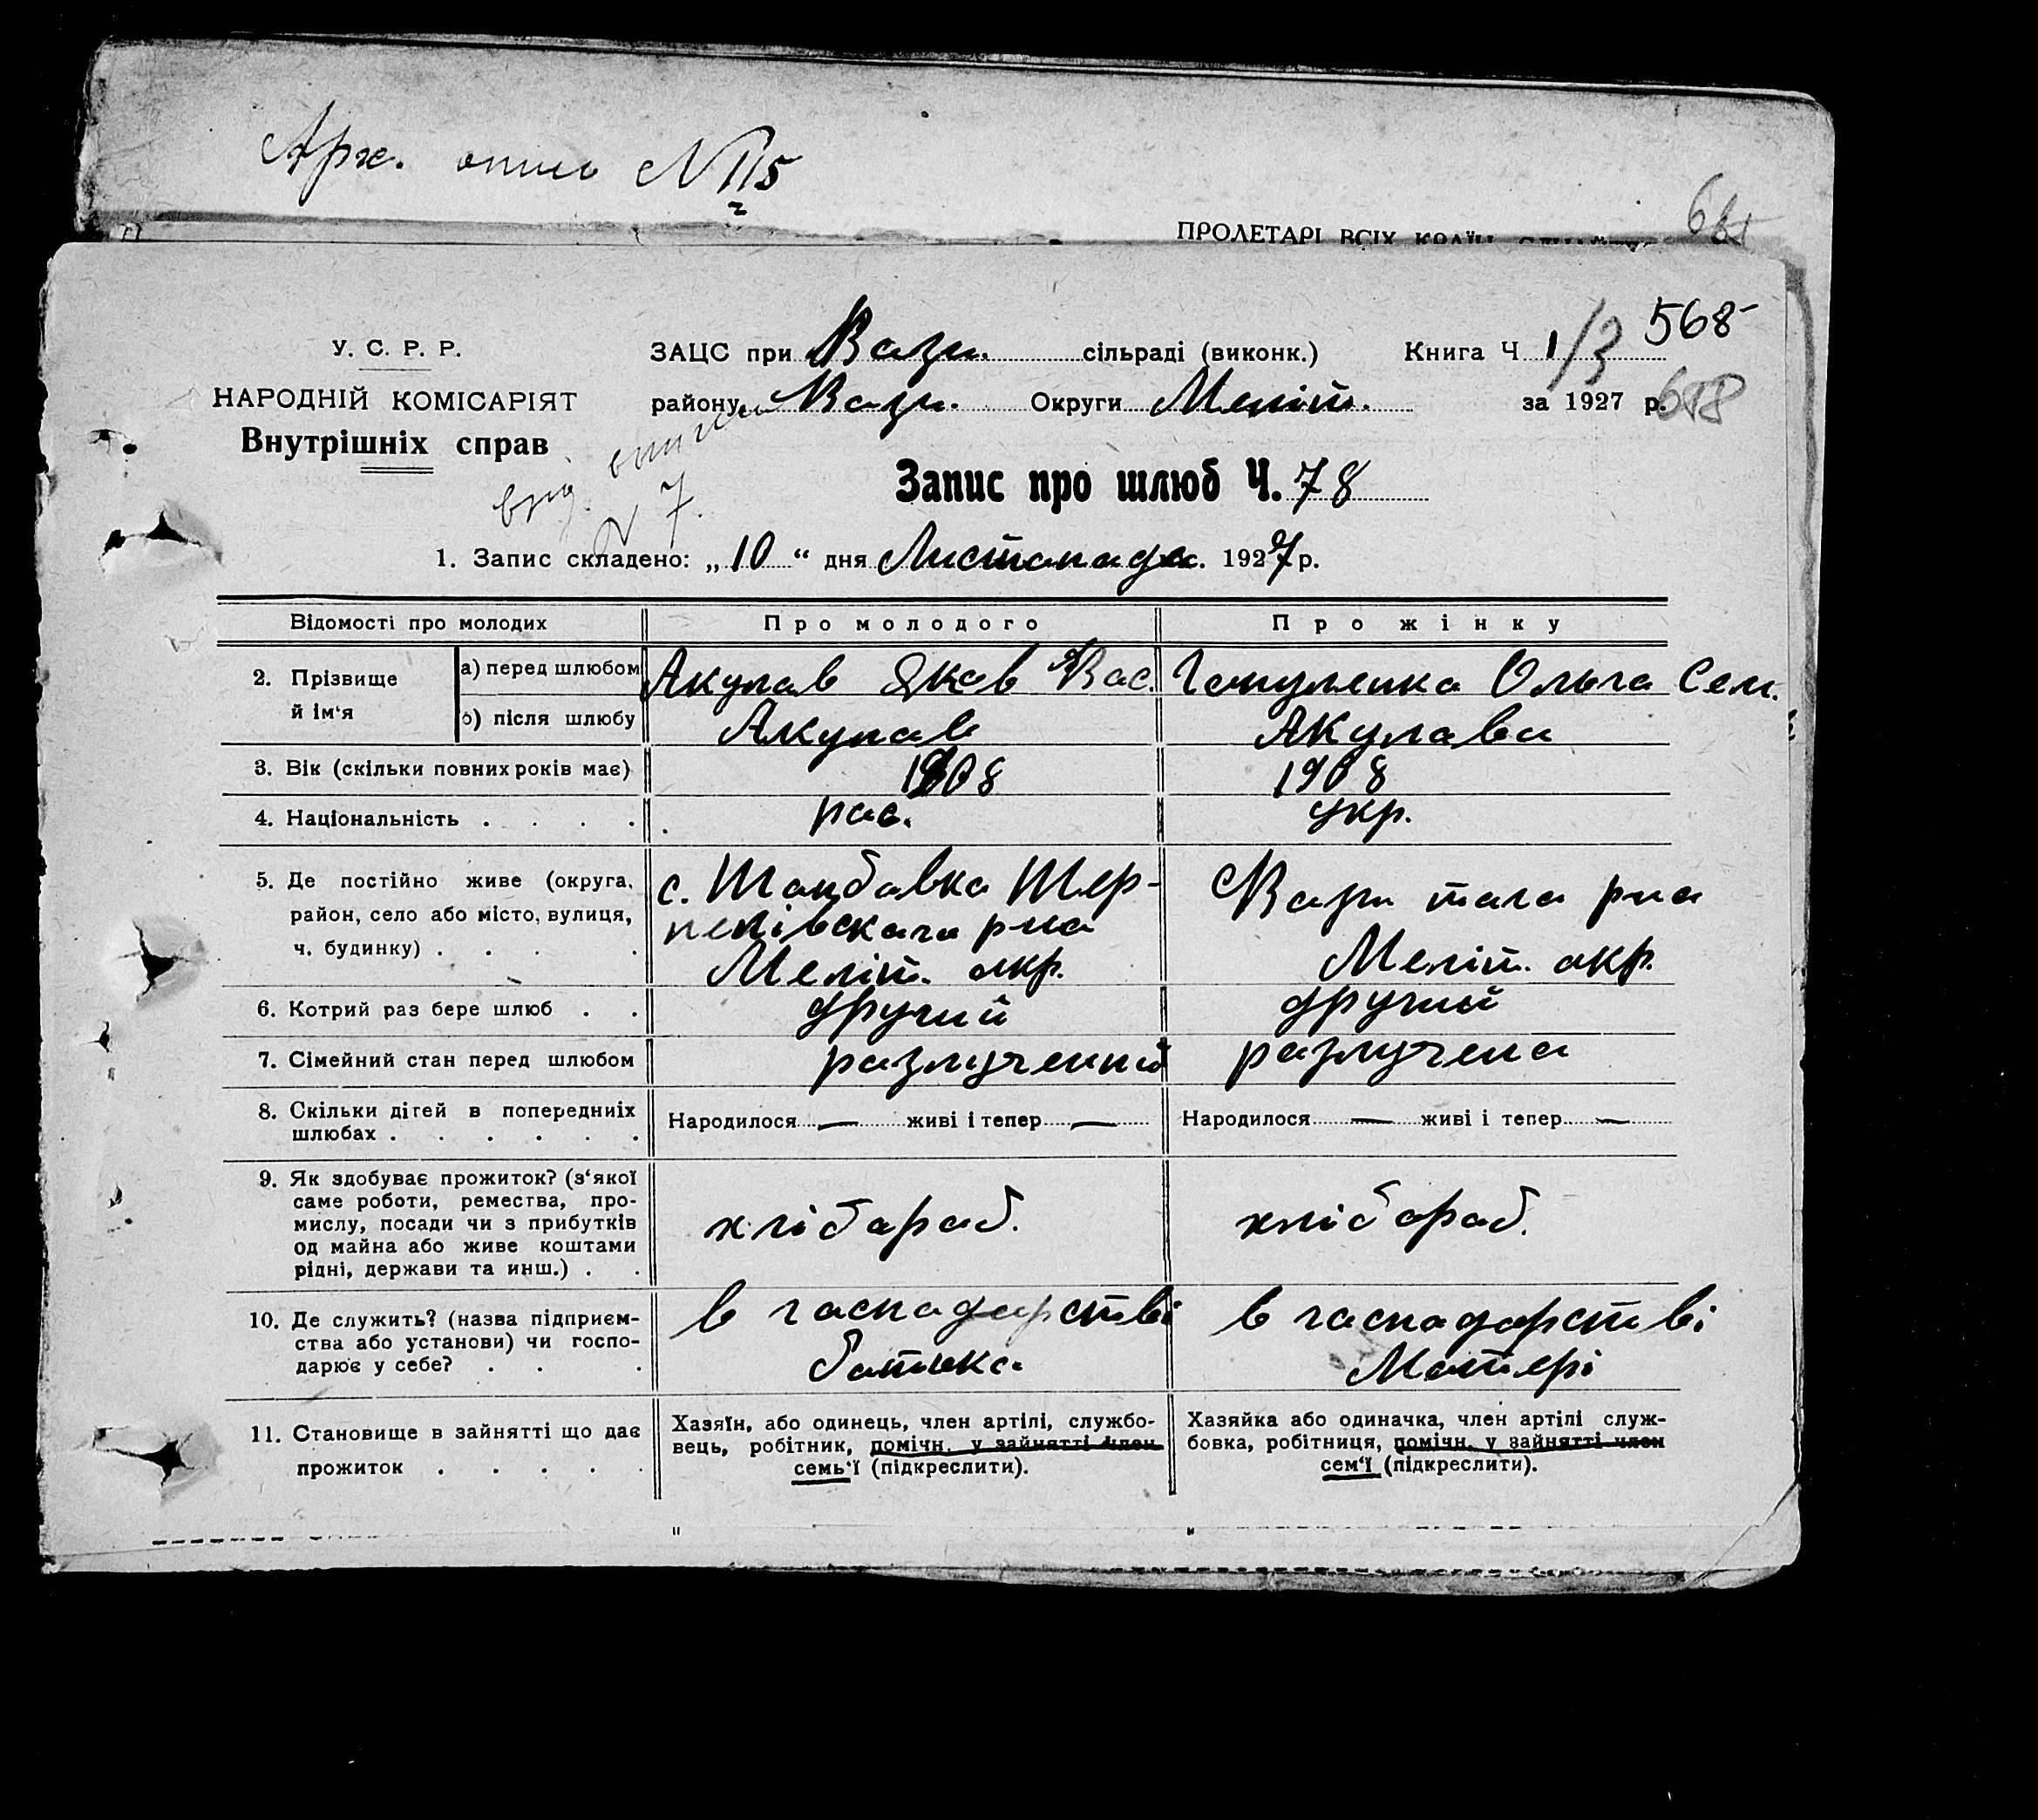 Арх. опись N 115
2
ПРОЛЕТАРІ ВСІХ КРАЇН
У. С. Р. Р.
НАРОДНІЙ КОМІСАРІЯТ
Внутрішніх справ
ЗАЦС при Вази. сільраді (виконк.) Книга Ч 1/3 568
району Вази. Округи Меліт. за 1927 р.
N 7.
Запис про шлюб Ч. 78
1. Запис складено: „10“ дня Листопада. 1927 р.
Відомості про молодих Про молодого Про жінку
2. Прізвище й ім‘я
а) перед шлюбом Акулав Яков Вас. Ольга Сем.
б) після шлюбу Акулав Акулава
3. Вік (скільки повних років має) 1908 1908
4. Національність . . . . . рас. укр.
5. Де постійно живе (округа, с. Шер-
район, село або місто, вулиця, пелівскага рна Вази тага рна
ч. будинку) . . . . Меліт. акр. Меліт. акр.
6. Котрий раз бере шлюб . . другий другий
7. Сімейний стан перед шлюбом разлученний разлучена
8. Скільки дітей в попередниіх Народилося — живі і тепер — Народилося — живі і тепер —
шлюбах . . . . . .
9. Як здобуває прожиток? (з‘якої
саме роботи, ремества, про-
мислу, посади чи з прибутків хлібараб. хлібараб.
од майна або живе коштами
рідні, держави та инш.) . .
10. Де служить? (назва підприєм- в гаспадарстві в гаспадарстві
ства або установи) чи госпо- батька Матері
дарює у себе? . . .
11. Становище в зайнятті що дає
прожиток . . . . .
Хазяїн, або одинець, член артілі, службо-
вець, робітник, помічн. у зайнятті член
семь‘ї (підкреслити).
Хазяйка або одиначка, член артілі служ-
бовка, робітниця, помічн. у зайнятті член
сем‘ї (підкреслити).